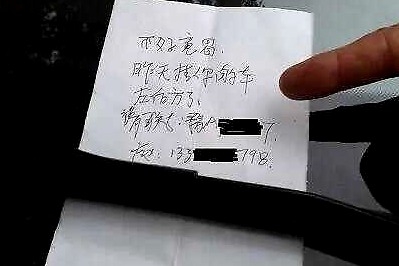 不好意思.
昨天你的车
左后方了.
请联系:7.
电:133798.